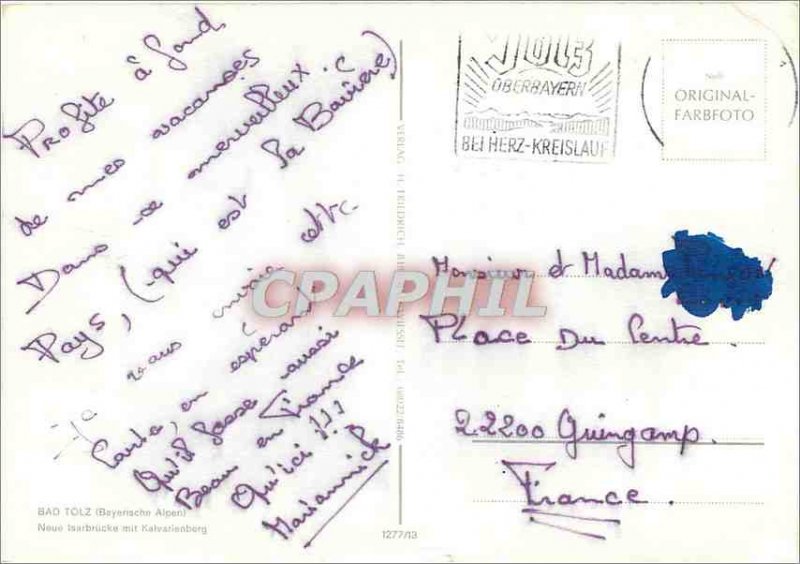 Profite à fond
de mes vacances
Dans ce merveilleux
Pays, (qui est la Bavière)
vous cette
Carte, en espérant
Qu'il fasse aussi
Beau en France
Qu'ici !!!
Mariannick
BAD TÖLZ (Bayerische Alpen)
Neue Isarbrücke mit Kalvarienberg
1277/13
VERLAG H. FRIEDRICH Tel. 08022/6486
CPAPHIL
TÖLZ
OBERBAYERN
BEI HERZ-KREISLAUF
ORIGINAL-
FARBFOTO
Monsieur et Madame
Place Du Centre.
22200 Guingamp.
France.